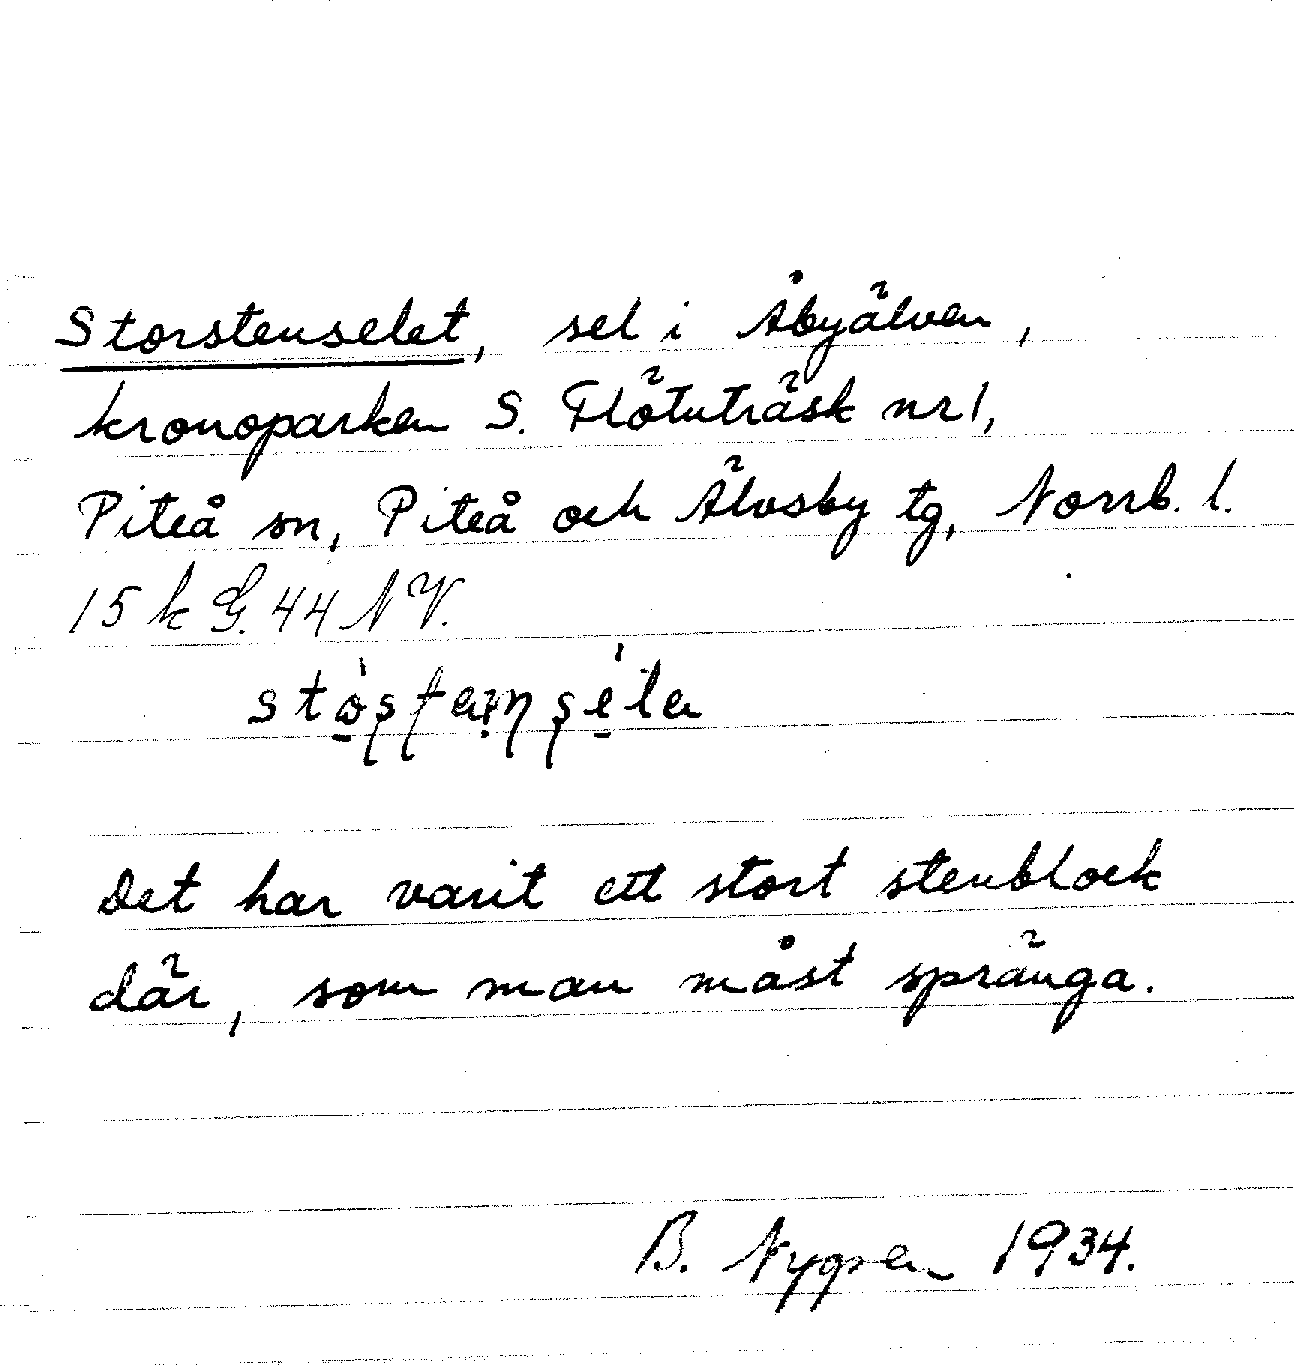 Storstenselet, sel i Åbyälven,
kronoparken S. Flötuträsk nr 1,
Piteå sn, Piteå och Älvsby tg, Norrb. l.
15 k G. 44 NV.
Det har varit ett stort stenblock
där, som man måst spränga.
B. Nygren 1934.